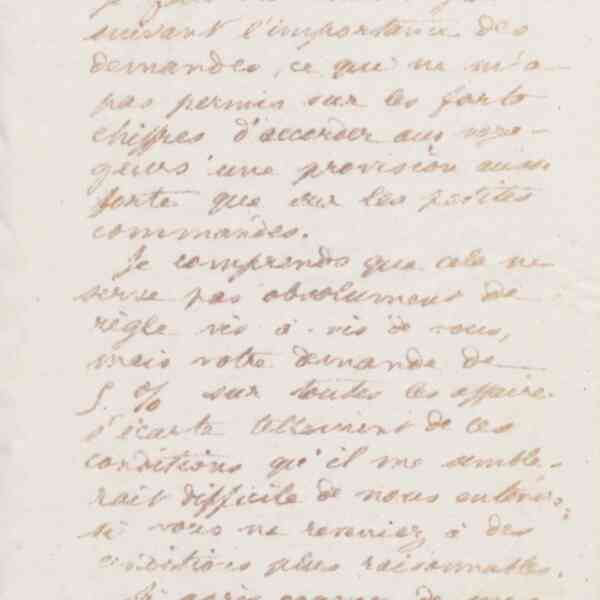 suivant l'importance des
demandes, ce que ne m'a
pas permis sur les forts
chiffres d'accorder aux voya-
geurs une provision aussi
forte que sur les petites
commandes.
Je comprends que cela ne
serve pas absolument de
règle vis à vis de vous,
mais votre demande de
5 % sur toutes les affaires
s'écarte tellement de ces
conditions qu'il me semble-
rait difficile de nous entendre
si vous ne reveniez à des
conditions plus raisonnables.